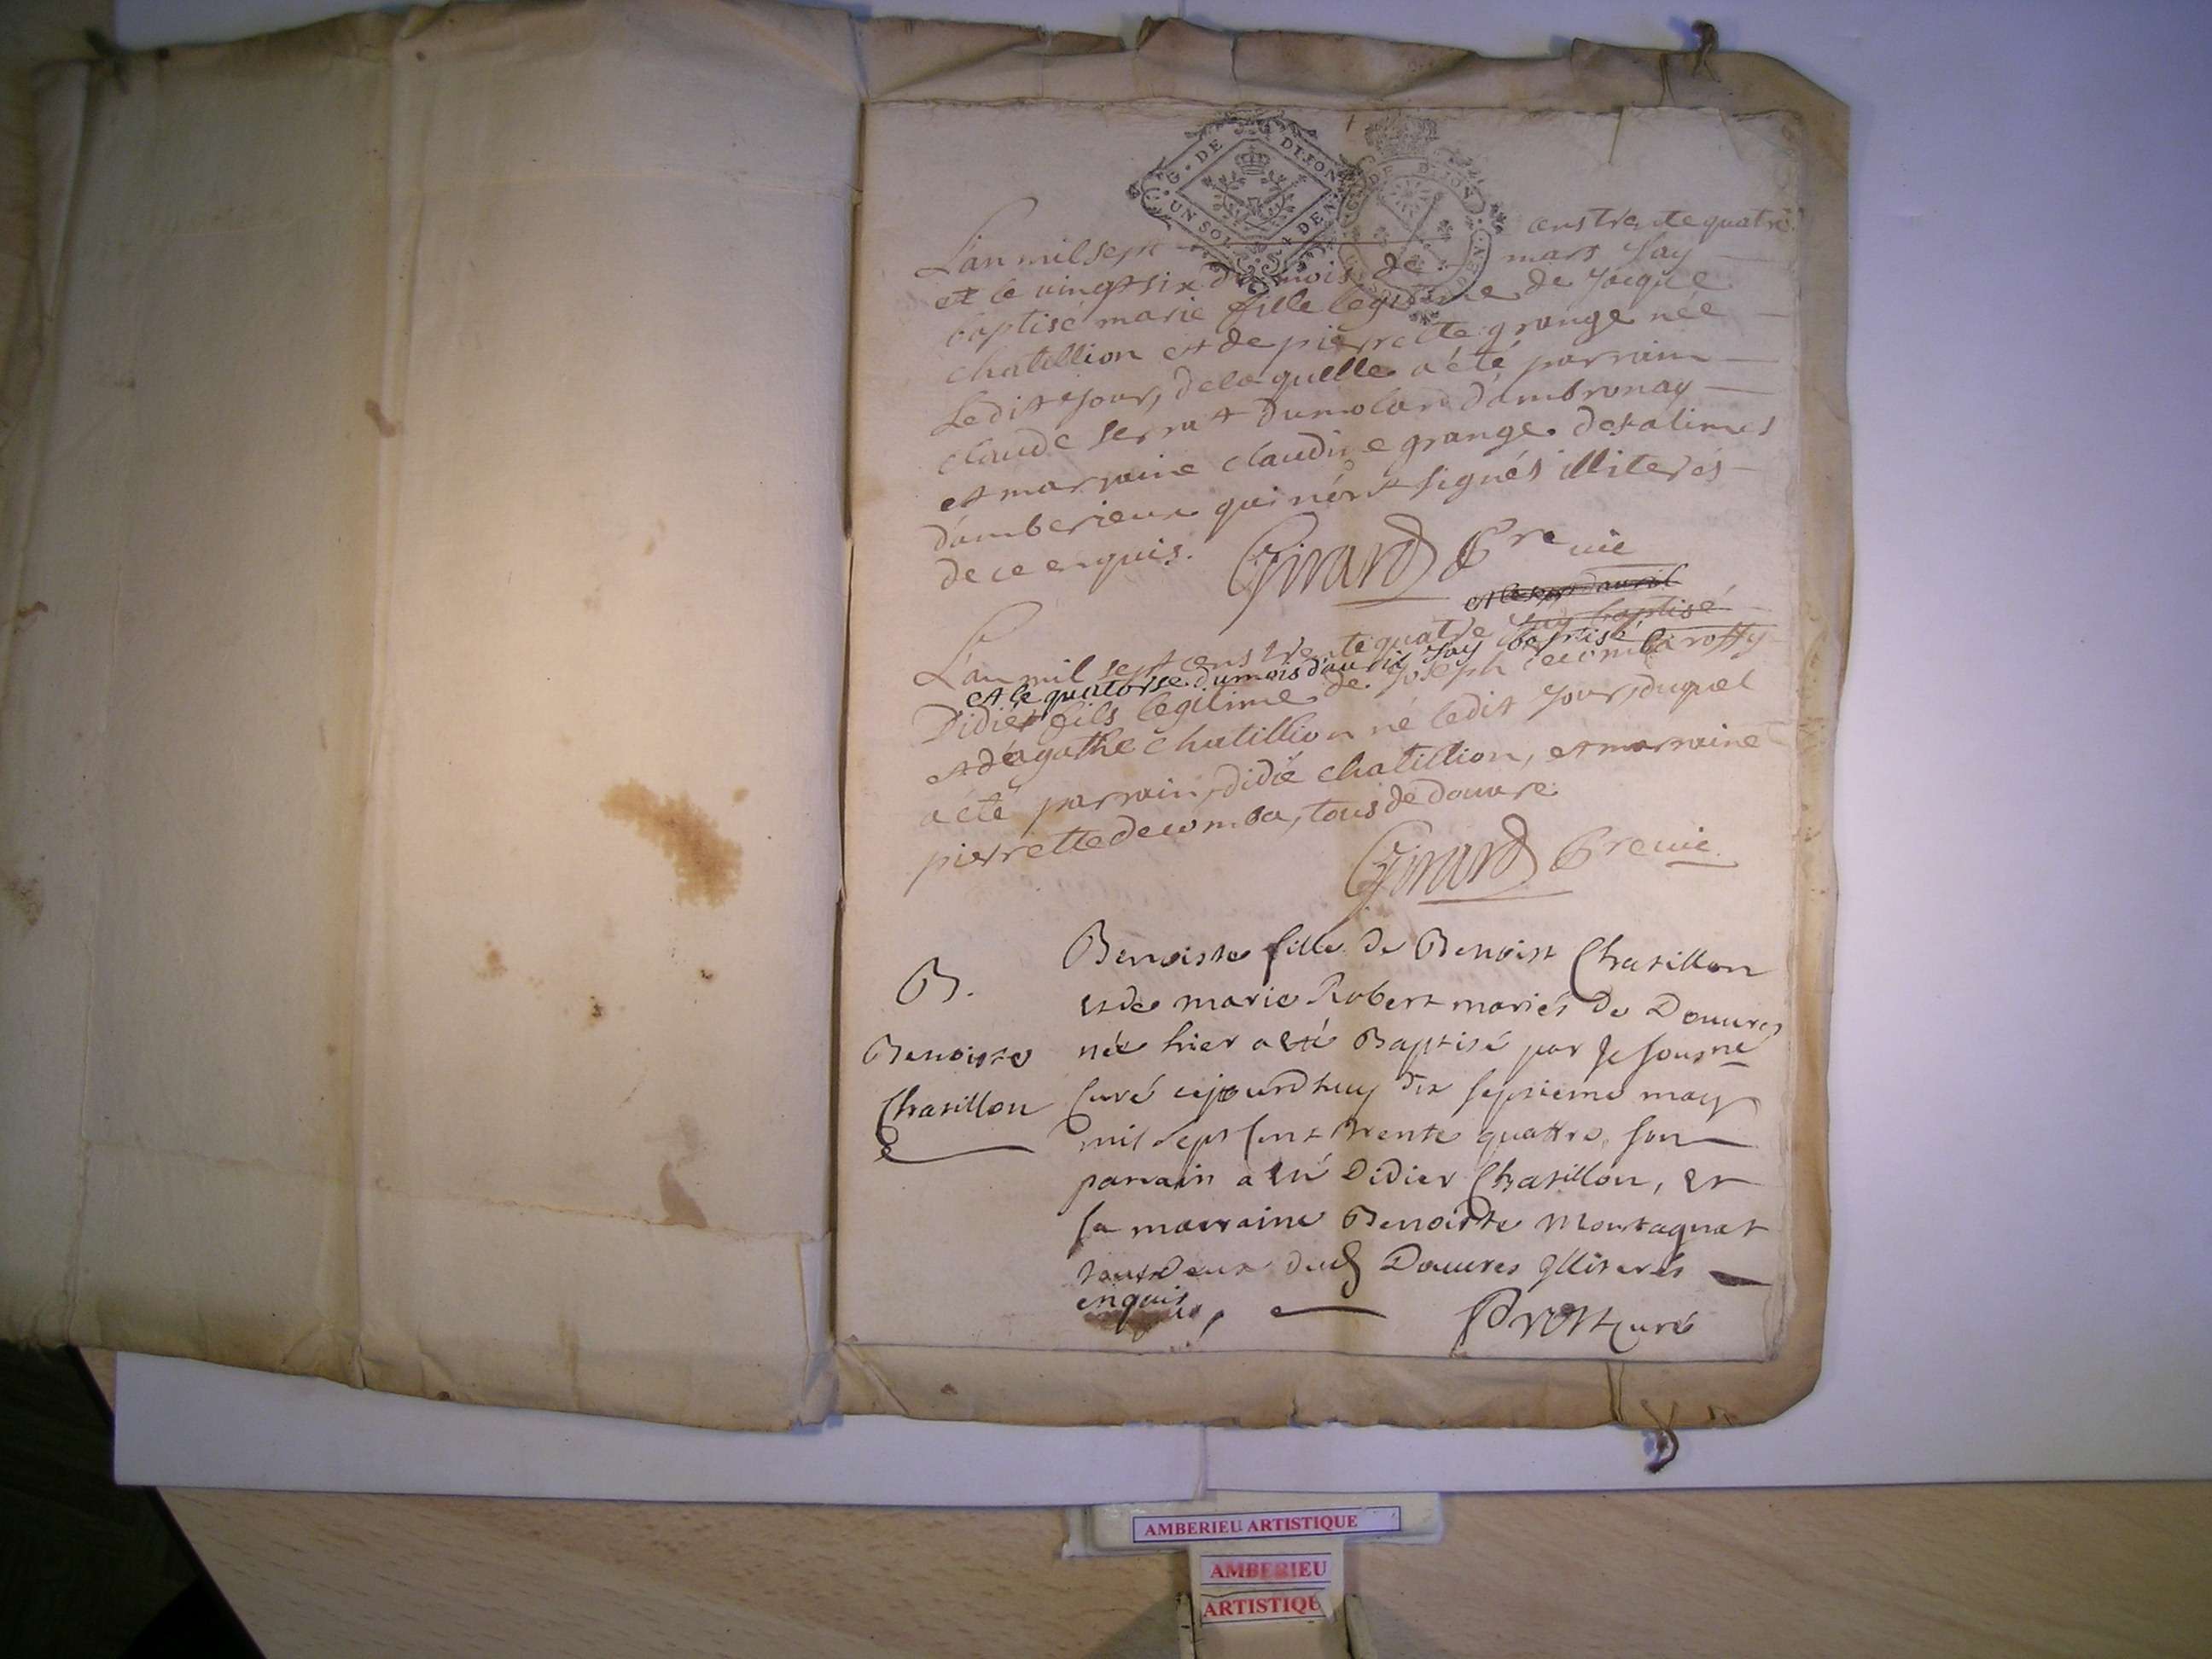 G. DE DIJON
UN SOL 4 DEN.
G. DE DIJON
L'an mil sept cens trente quatre
et le vingt six du mois de mars Jay
baptisé marie fille legitime de Jacque
chatillion et de pierrette grange née
Ledit jour, de laquelle a été parrain
claude serrat dumolard d'ambronay
et marraine claudine grange des alimes
d'amberieux qui n'ont signés illiterés
de ce enquis. Girard Pre vic
et le sept d'auril
L'an mil sept cens trente quatre Jay baptisé
et le quatorse du mois d'auril Jay baptisé
Didier fils legitime de Joseph decomba roffy
et d'agathe chatillion né ledit jour, duquel
a été parrain, didié chatillion, et marraine
pierrette decomba, tous de douvre.
Girard Pre vic.
B.
Benoiste
Chatillon
Benoiste fille de Benoist Chatillon
et de marie Robert mariés de Douvres
née hier a eté Baptisé par Je sousne
Curé cejourdhuy dix septieme may
mil sept cent trente quattre, son
parrain a eté Didier Chatillon, et
sa marraine Benoiste Montagnat
tout deux dud Douvres illiterés
enquis, Prost curé
AMBERIEU ARTISTIQUE
AMBERIEU
ARTISTIQUE